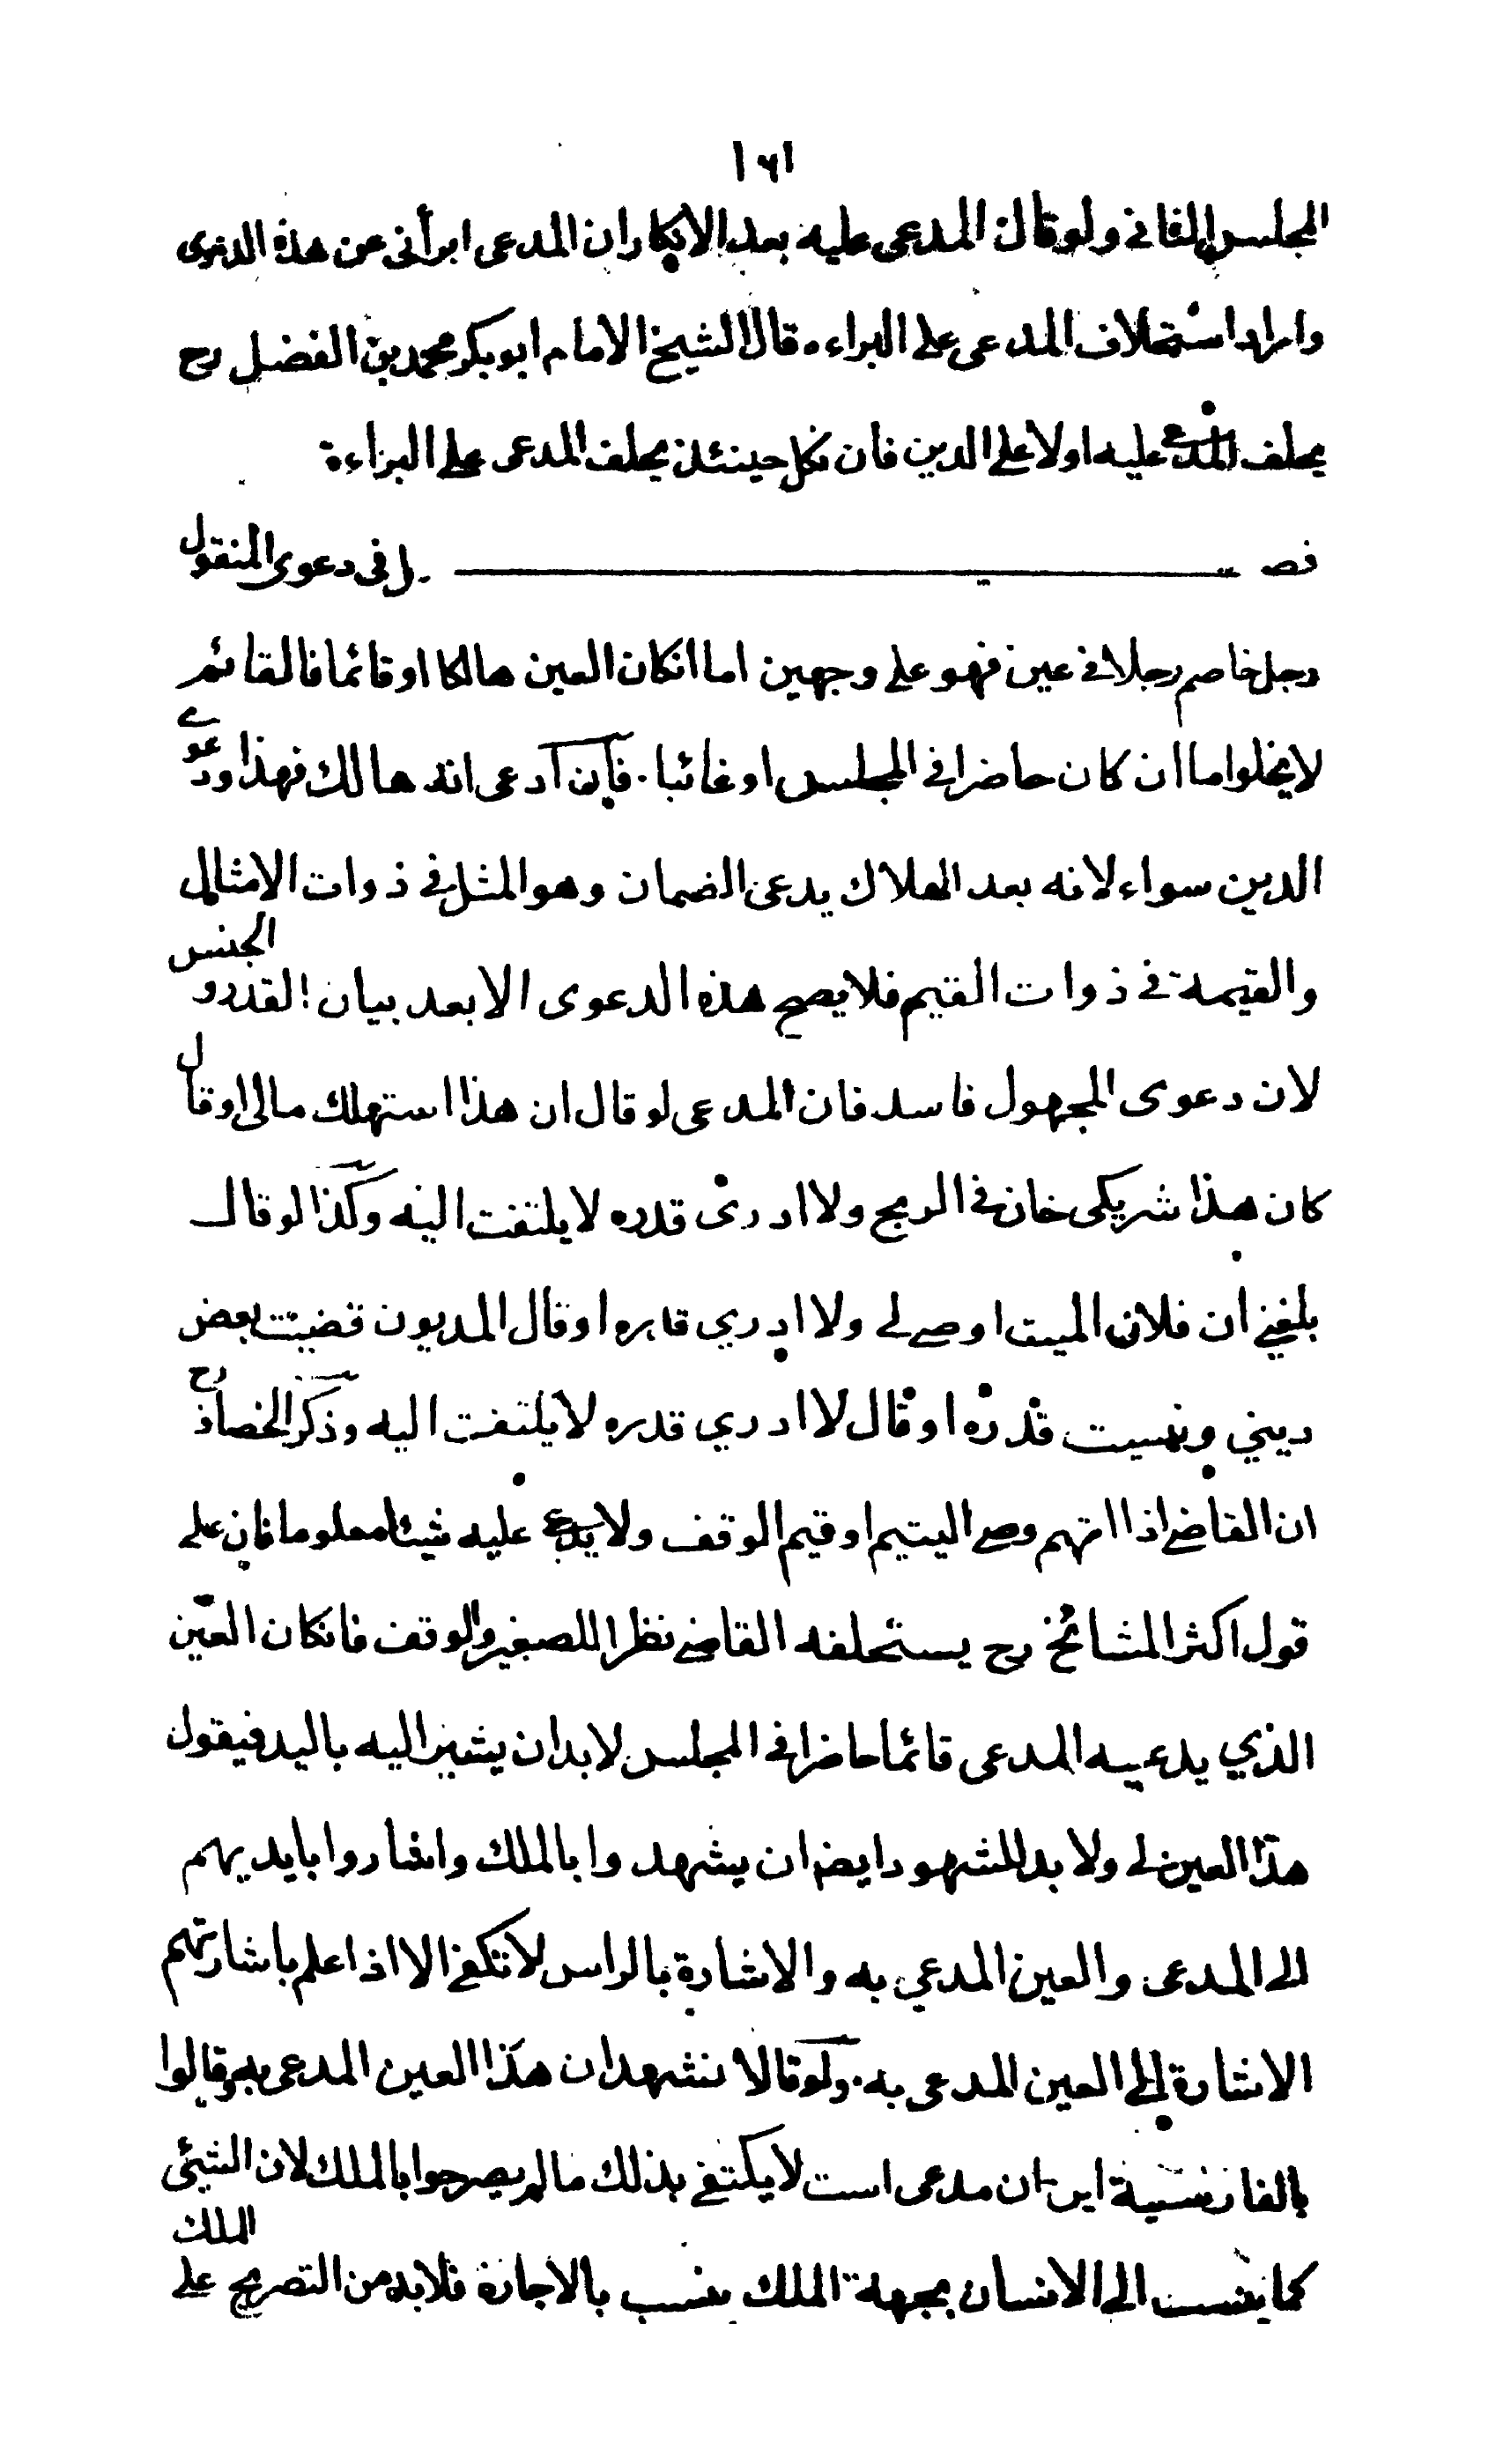 ١٦١
المجلس الثاني ولو قال المدعى عليه بعد الانكار ان المدعى ابرأنى عن هذه الدعوى
واراد استحلاف المدعى على البراءه قال الشيخ الامام ابو بكر محمد بن الفضل رح
يحلف المدعى عليه اولا على الدين فان نكل حينئذ يحلف المدعى على البراءة
فصـــل فى دعوى المنقول
رجل خاصم رجلا فى عين فهو على وجهين اما انكان العين هالكا او قائما فالقائم
لا يخلوا ما ان كان حاضرا فى المجلس او غائبا. فان ادعى انه هالك فهذا ودعوى
الدين سواء لانه بعد الهلاك يدعى الضمان وهو المثل فى ذوات الامثال
والقيمة فى ذوات القيم فلا يصح هذه الدعوى الا بعد بيان القدر و الجنس
لان دعوى المجهول فاسد فان المدعى لو قال ان هذا استهلك مالى او قال
كان هذا شريكى خان فى الربح ولا ادرى قدره لا يلتفت اليه وكذا لو قال
بلغنى ان فلان الميت اوصى لى ولا ادري قدره او قال المديون قضيت بعض
ديني ونسيت قدره او قال لا ادري قدره لا يلتفت اليه وذكر الخصاف رح
ان القاضى اذا اتهم وصى اليتيم او قيم الوقف ولا يدعى عليه شيئا معلوما فان على
قول اكثر المشائخ رح يستحلفه القاضى نظرا للصغير والوقف فانكان العين
الذي يدعيه المدعى قائما حاضرا فى المجلس لا بد ان يشير اليه باليد فيقول
هذا العين لى ولا بد للشهود ايضا ان يشهدوا بالملك واشاروا بايديهم
الى المدعى والعين المدعي به والاشارة بالراس لا تكفى الا اذا علم باشارتهم
الاشارة الى العين المدعى به. ولو قالا نشهد ان هذا العين المدعى به وقالوا
بالفارسية اين آن مدعى است لا يكتفى بذلك ما لم يصرحوا بالملك لان الشيئ
كما ينسب الى الانسان بجهة الملك ينسب بالاجارة فلا بد من التصريح على الملك